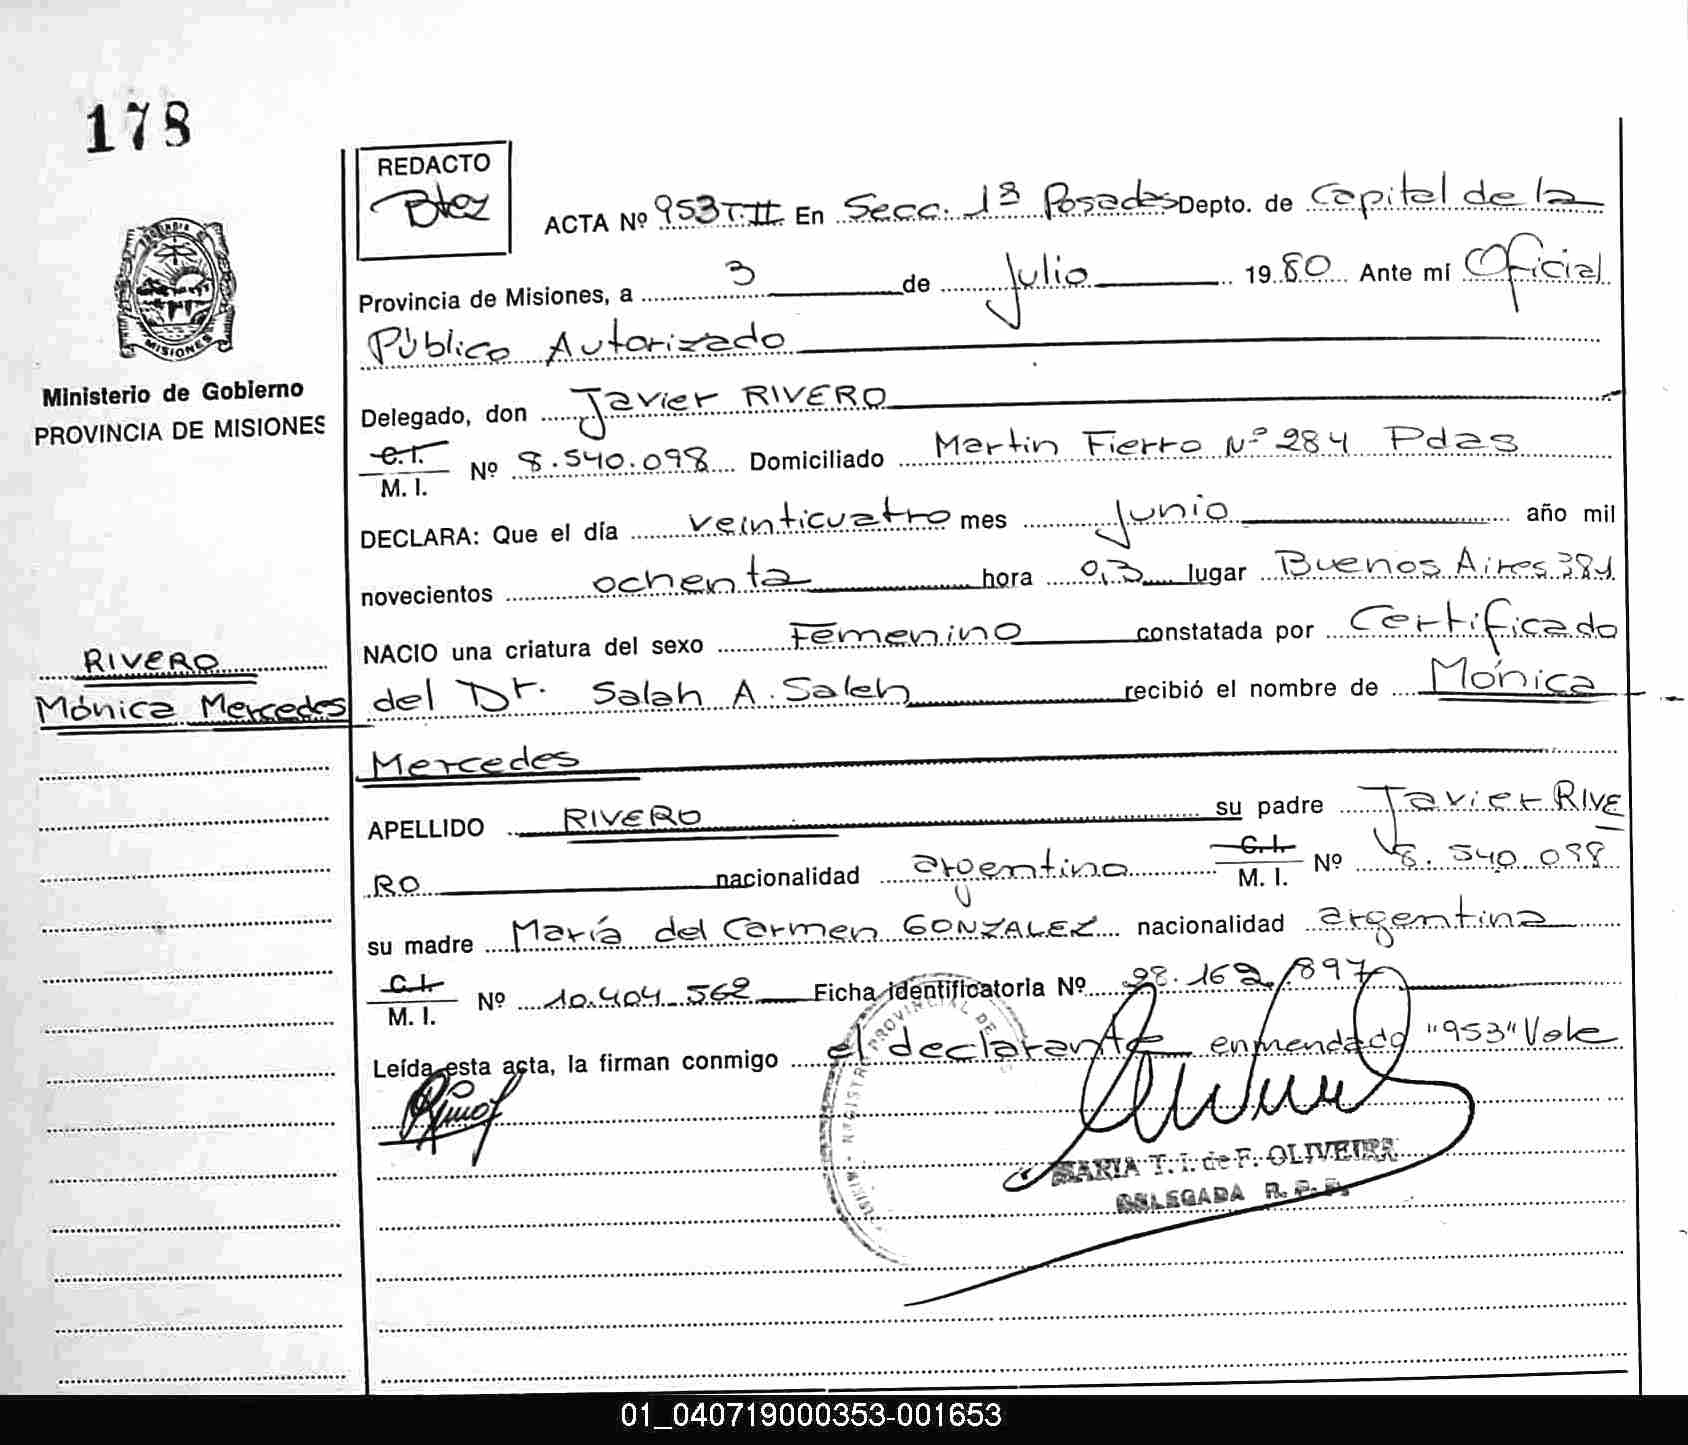 178
REDACTO
ACTA Nº 953 T.II En Secc. 1ª Posadas Depto. de Capital de la
Provincia de Misiones, a 3 de Julio 1980 Ante mí Oficial
Público Autorizado
MISIONES
Ministerio de Gobierno
PROVINCIA DE MISIONES
Delegado, don Javier RIVERO
C.I.
M. I. Nº 8.540.098 Domiciliado Martin Fierro Nº 284 Pdas
DECLARA: Que el día veinticuatro mes Junio año mil
novecientos ochenta hora 0,3 lugar Buenos Aires 381
NACIO una criatura del sexo Femenino constatada por Certificado
RIVERO
Mónica Mercedes
del Dr. Salah A. Saleh recibió el nombre de Mónica
Mercedes
APELLIDO RIVERO su padre Javier RIVE
RO nacionalidad argentina C.I. M. I. Nº 8.540.098
su madre María del Carmen GONZALEZ nacionalidad argentina
C.I.
M. I. Nº 10.404.562 Ficha identificatoria Nº 28.162.897
Leída esta acta, la firman conmigo el declarante enmendado "953" Vale
MARIA T. I. de F. OLIVEIRA
DELEGADA R. P. P.
01_040719000353-001653